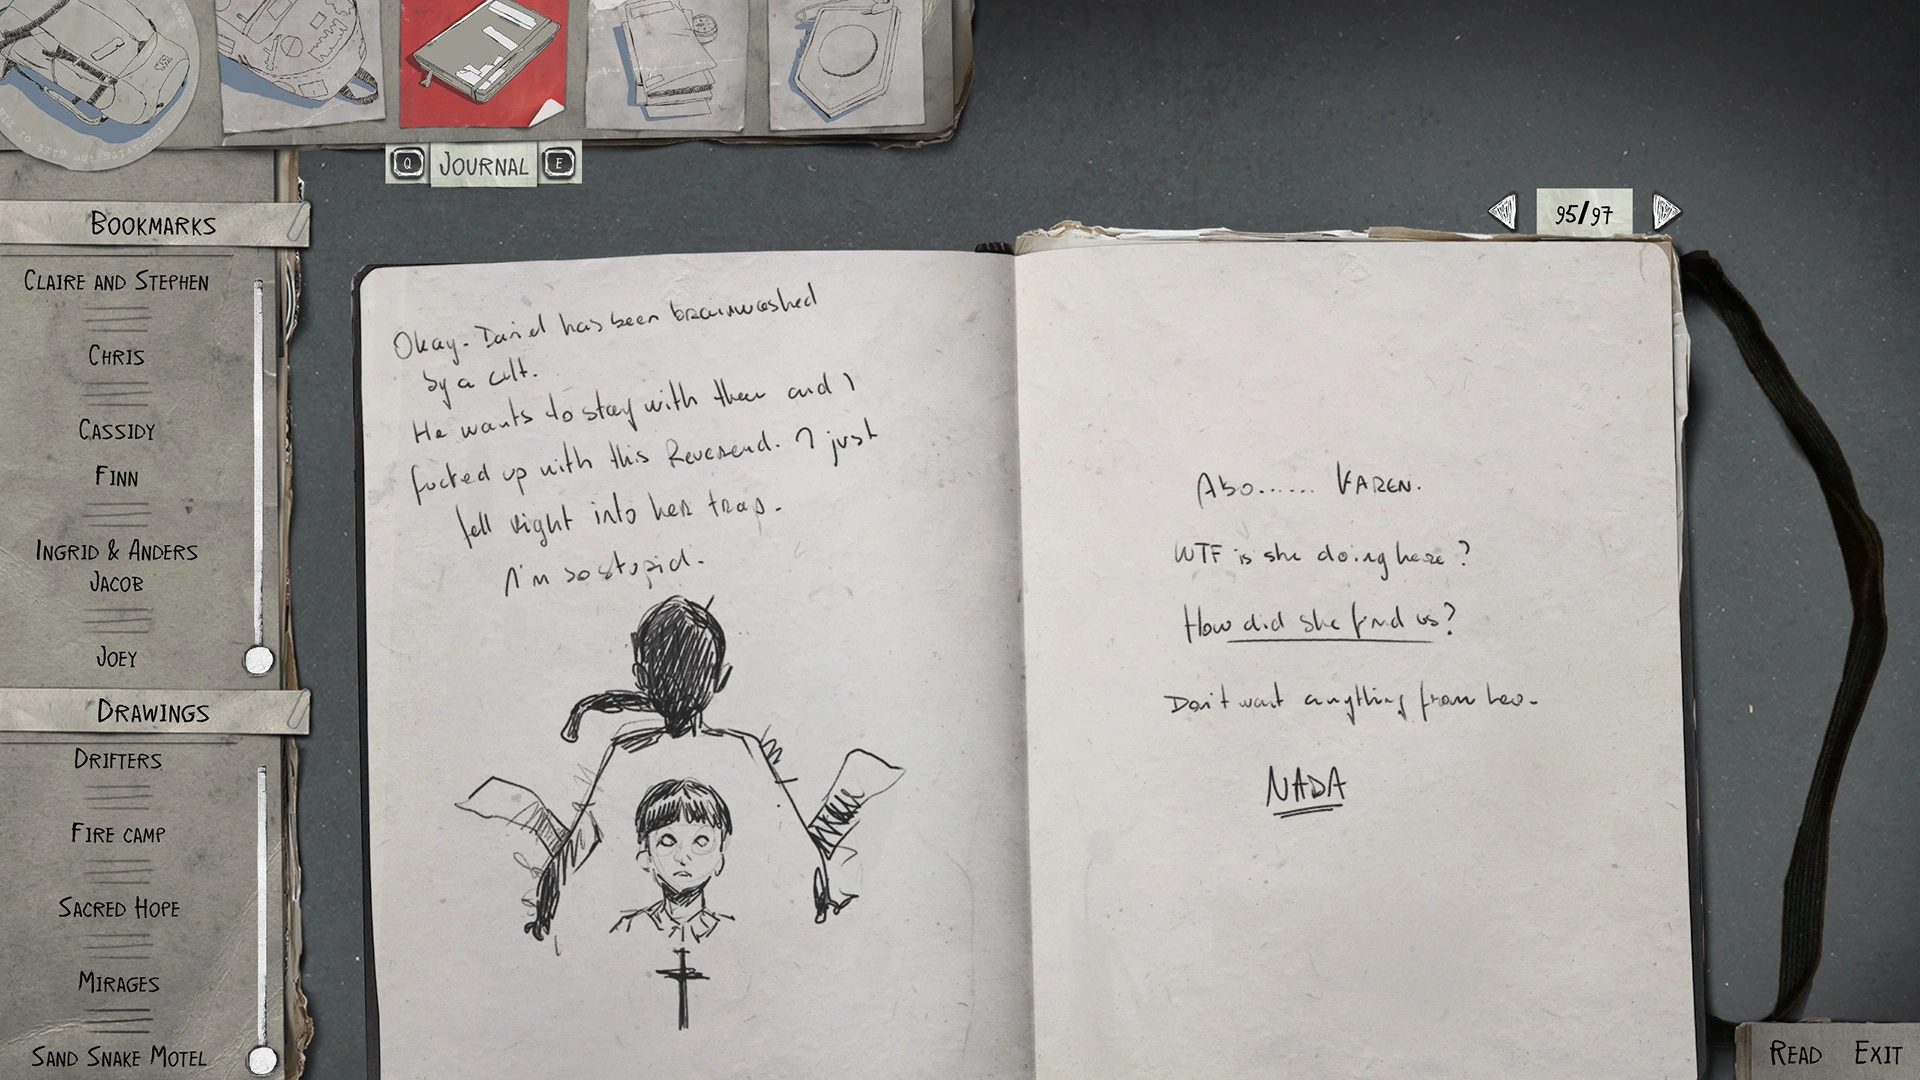 Q JOURNAL E
95/97
BOOKMARKS
CLAIRE AND STEPHEN
CHRIS
CASSIDY
FINN
INGRID & ANDERS
JACOB
JOEY
DRAWINGS
DRIFTERS
FIRE CAMP
SACRED HOPE
MIRAGES
SAND SNAKE MOTEL
Okay. Daniel has been brainwashed
by a cult.
He wants to stay with them and I
fucked up with this Reverend. I just
fell right into her trap.
I'm so stupid.
Also...... KAREN.
WTF is she doing here?
How did she find us?
Don't want anything from her.
NADA
READ EXIT